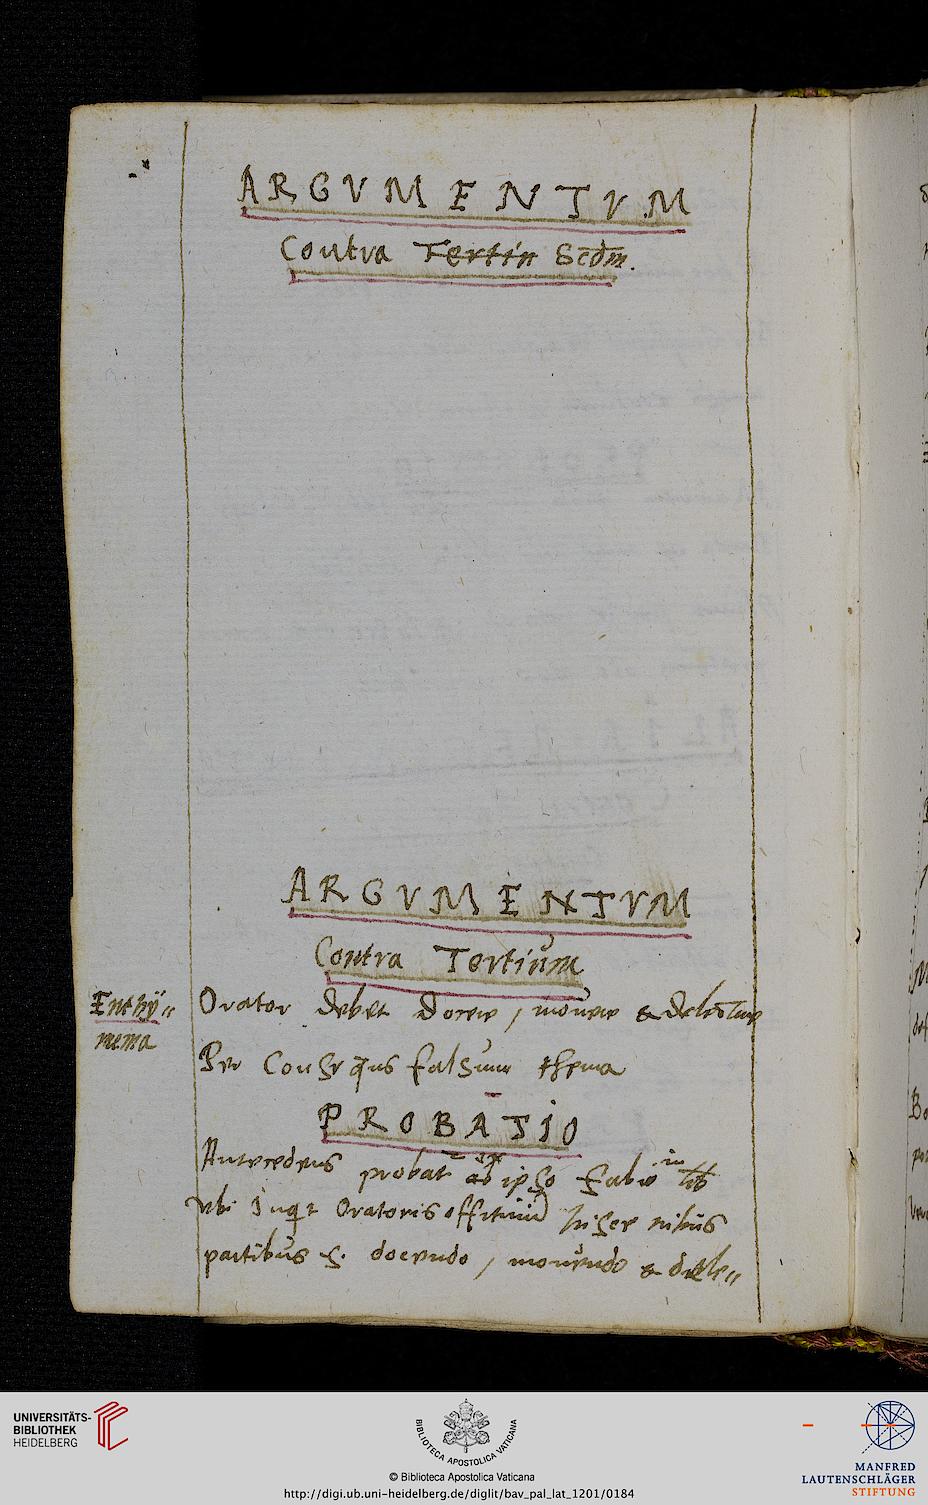 ARGVMENTVM
Contra Tertiū Scdm.
ARGVMENTVM
Contra Tertium
Enthÿ=
mema
Orator debet docere, mouere & delectare
Per Conseq̄ns falsum thema
PROBATIO
Antecedens probat ab ipso fabio in
vbi Inqt Oratoris offitium
partibus s. docendo, mouendo & dele=
UNIVERSITÄTS-
BIBLIOTHEK
HEIDELBERG
BIBLIOTECA APOSTOLICA VATICANA
© Biblioteca Apostolica Vaticana
http://digi.ub.uni-heidelberg.de/diglit/bav_pal_lat_1201/0184
MANFRED
LAUTENSCHLÄGER
STIFTUNG